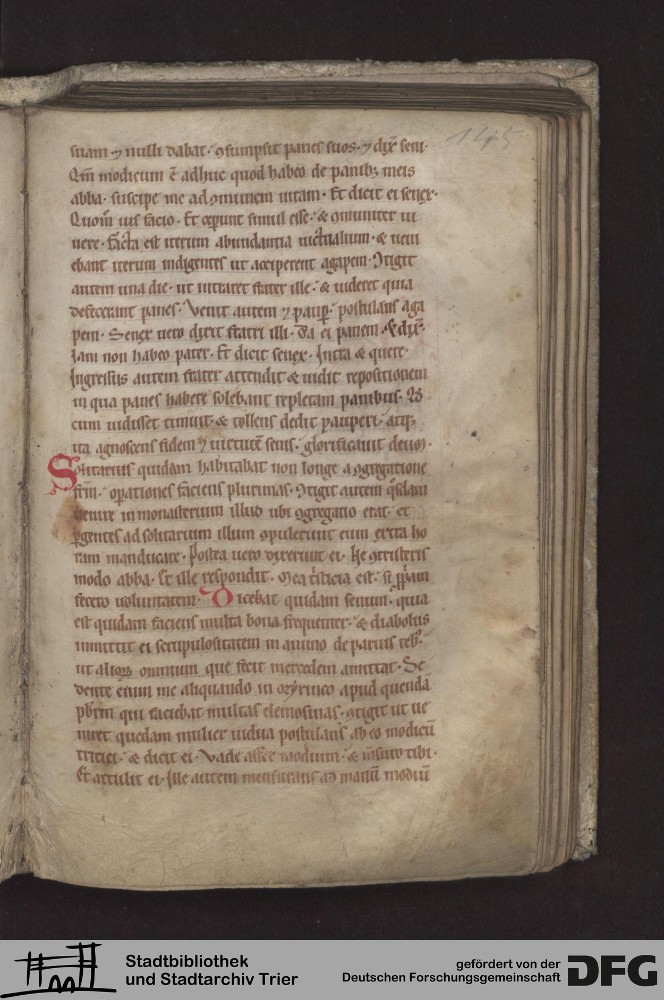 145
suam ⁊ nulli dabat. ꝯsumpsit panes suos. ⁊ dix̄ seni.
Qm̄ modicum ē adhuc quod habeo de panibꝫ meis
abba. suscipe me ad ꝯmunem uitam. Et dicit ei senex.
Quom̄ uis facio. Et ceperunt simul esse. & ꝯmuniter ui
uere. Facta est iterum abundantia uictualium. & ueni
ebant iterum indigentes ut acciperent agapem. Ꝯtigit
autem una die. ut intraret frater ille. & uideret quia
defecerant panes. Venit autem ⁊ paup̄. postulans aga
pem. Senex uero dixit fratri illi. Da ei panem. & dix̄.
Iam non habeo pater. Et dicit senex. Intra & quere.
Ingressus autem frater attendit & uidit repositionem
in qua panes habere solebant repletam panibus. &
cum uidisset timuit. & tollens dedit pauperi. atqꝫ
ita agnoscens fidem ⁊ uirtutē senis. glorificauit deum.
Solitarius quidam habitabat non longe a ꝯgregatione
frm̄. operationes faciens plurimas. Ꝯtigit autem qͦsdam
uenire in monasterium illud ubi ꝯgregatio erat. et
ꝑgentes ad solitarium illum ꝯpulerunt eum extra ho
ram manducare. Postea uero dixerunt ei. Ne ꝯtristeris
modo abba. Et ille respondit. Mea tristicia est. si ꝓpriam
fecero uoluntatem. Dicebat quidam senum. quia
est quidam faciens multa bona frequenter. & diabolus
inmittit ei scrupulositatem in animo de paruis reb.
ut alioꝝ omnium que fecit mercedem amittat. Se
dente enim me aliquando in oxyrinco apud quendā
pbrm̄ qui faciebat multas elemosinas. ꝯtigit ut ue
niret quedam mulier uidua postulans ab eo modicū
tritici. & dicit ei. Vade affer modium. & mensuro tibi.
Et attulit ei. Ille autem mensurans ad manū modiū
Stadtbibliothek
und Stadtarchiv Trier
gefördert von der
Deutschen Forschungsgemeinschaft
DFG